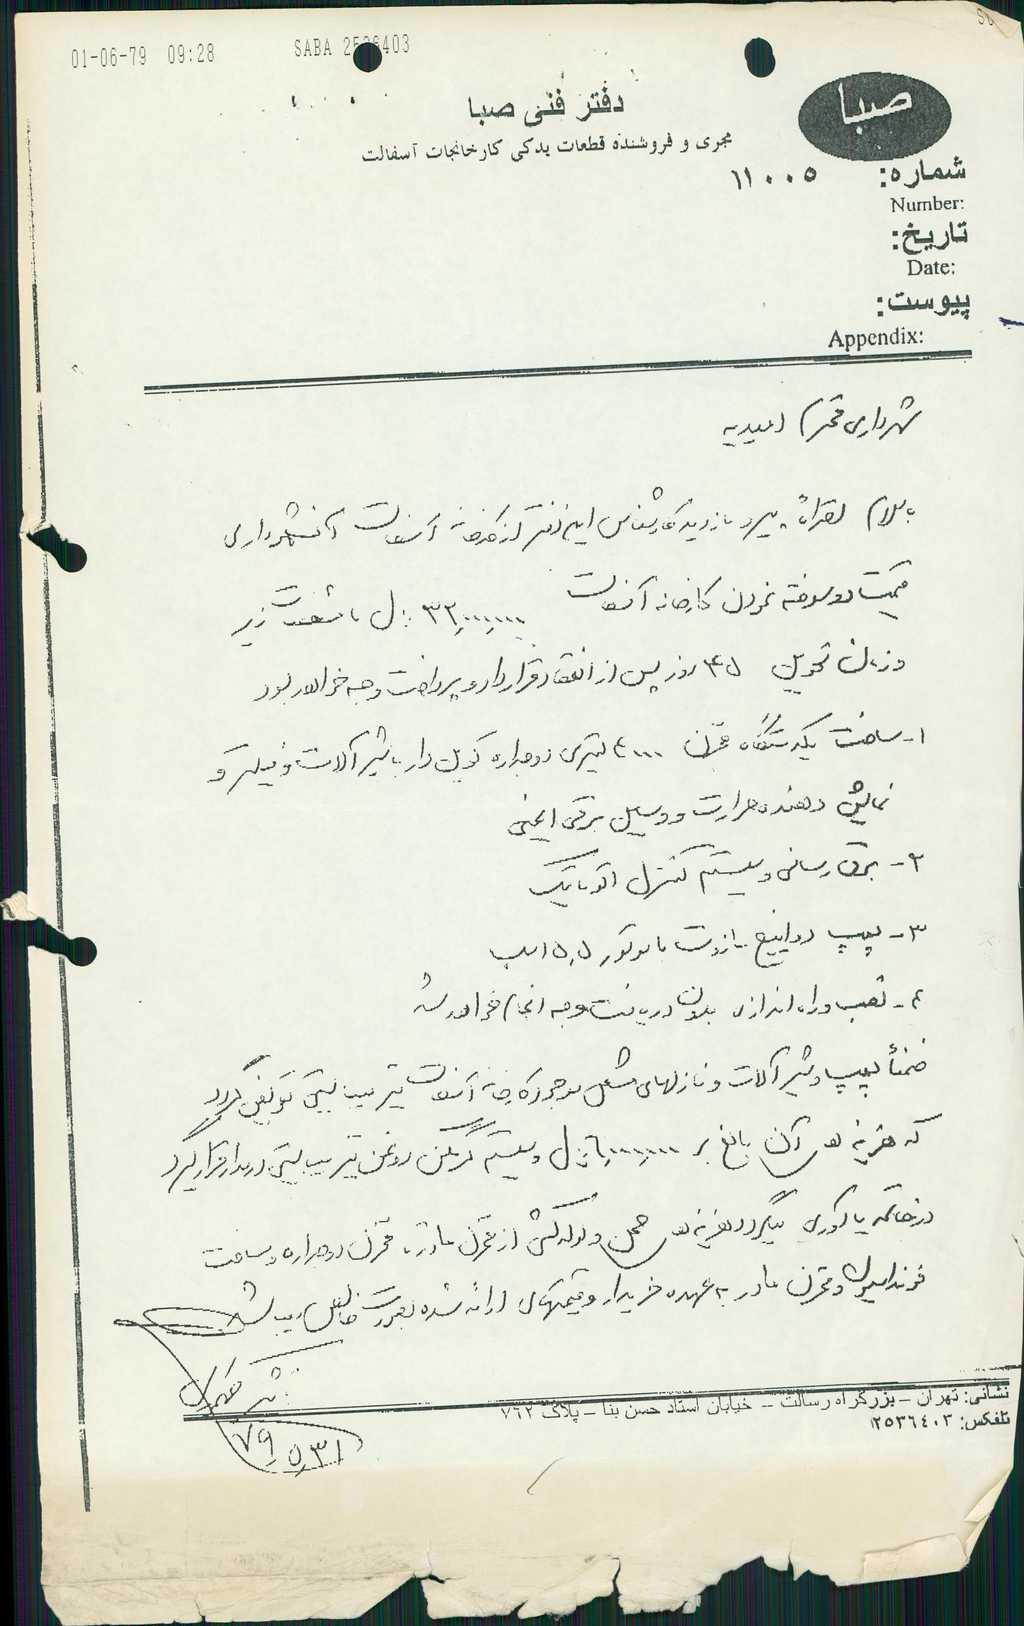 01-06-79 09:28 SABA 2536403
صبا
دفتر فنی صبا
مجری و فروشنده قطعات یدکی کارخانجات آسفالت
شماره: ۱۱۰۰۵
Number:
تاریخ:
Date:
پیوست:
Appendix:
شهرداری محترم امیدیه
با سلام احتراماً پیرو بازدید کارشناس این دفتر از کارخانه آسفالت آن شهرداری
قیمت دو سوخته نمودن کارخانه آسفالت ۳۲,۰۰۰,۰۰۰ ریال با مشخصات زیر
و زمان تحویل ۴۵ روز پس از انعقاد قرارداد و پرداخت وجه خواهد بود
۱- ساخت یکدستگاه مخزن ۴۰۰۰ لیتری دو جداره کویل دار با شیرآلات و فیلتر و
نمایش دهنده حرارت و وسایل برقی ایمنی
۲- برق رسانی و سیستم کنترل اتوماتیک
۳- پمپ دو اینچ مازوت با موتور ۵,۵ اسب
۴- نصب و راه اندازی بدون دریافت وجه انجام خواهد شد
ضمناً پمپ و شیرآلات و نازلهای مشعل موجود کارخانه آسفالت تعویض گردد
که هزینه های آن بالغ بر ریال و سیستم گرمکن روغن در مدار قرار گیرد
در خاتمه یادآوری میگردد هزینه های حمل و لوله کشی از مخزن مادر تا مخزن دو جداره و ساخت
فونداسیون و مخزن مادر به عهده خریدار و قیمتهای ارائه شده بصورت خالص میباشد
۷۹,۵,۳۱
نشانی: تهران – بزرگراه رسالت – خیابان استاد حسن بنا – پلاک ۷۶۲
تلفکس: ۲۵۳۶۴۰۳